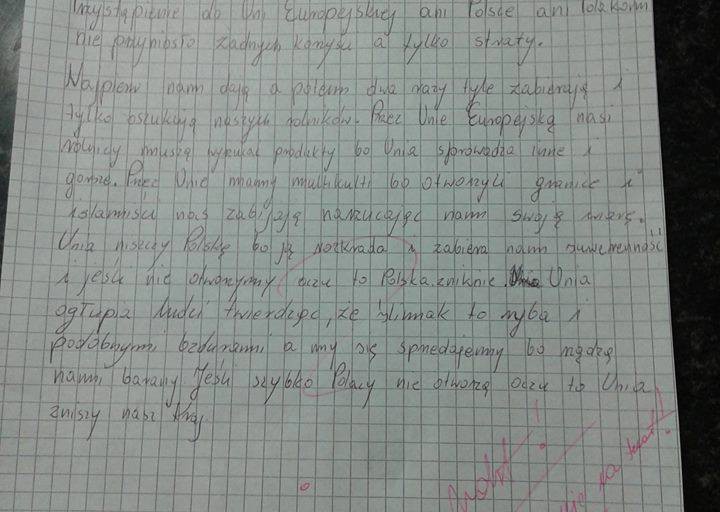 Przystąpienie do Uni Europejskiej ani Polsce ani Polakom
nie przyniosło żadnych korzyści a tylko straty.
Najpierw nam dają a potem dwa razy tyle zabierają i
tylko oszukują naszych rolników. Przez Unie Europejską nasi
rolnicy muszą wyrzucać produkty bo Unia sprowadza inne i
gorsze. Przez Unie mamy multikulti bo otworzyli granice i
islamiści nas zabijają narzucając nam swoją wiarę.
Unia niszczy Polskę bo ją rozkrada i zabiera nam suwerenność
i jeśli nie otworzymy oczu to Polska zniknie. Unia
ogłupia ludzi twierdząc, że ślimak to ryba i
podobnymi bzdurami a my się sprzedajemy bo rządzą
nami barany Jeśli szybko Polacy nie otworzą oczu to Unia
zniszy nasz kraj
na temat!